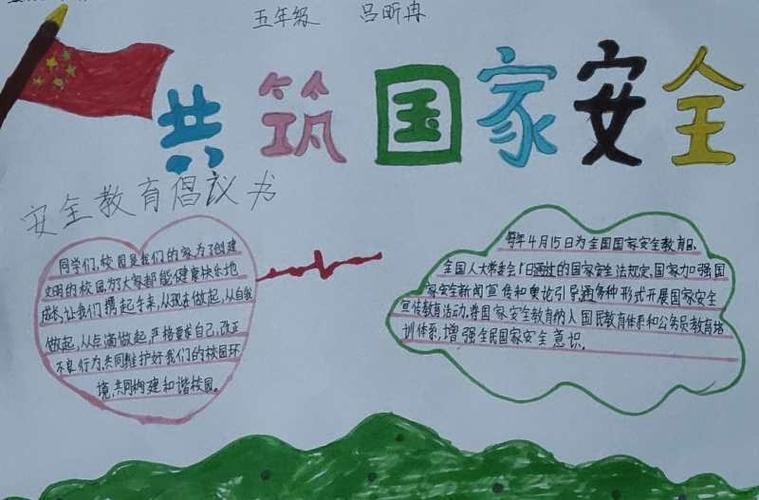 五年级 吕昕冉
共筑国家安全
安全教育倡议书
同学们,校园是我们的家为了创建
文明的校园,为了大家都能健康快乐地
成长,让我们携起手来,从现在做起,从自我
做起,从点滴做起,严格要求自己,改正
不良行为,共同维护好我们的校园环
境,共同构建和谐校园。
每年4月15日为全国国家安全教育日。
全国人大常委会1日通过的国家安全法规定,国家加强国
家安全新闻宣传和舆论引导,通各种形式开展国家安全
宣传教育活动,将国家安全教育纳入国民教育体系和公务员教育培
训体系,增强全民国家安全意识。